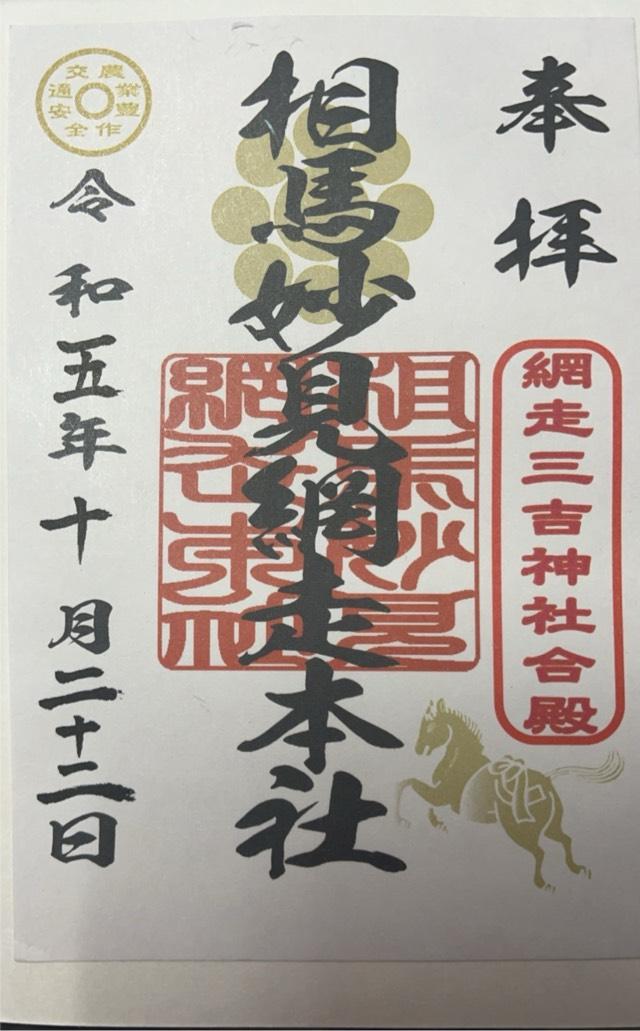 奉拝
網走三吉神社合殿
相馬妙見網走本社
相馬妙見
網走本社
農業豊作
交通安全
令和五年十月二十二日